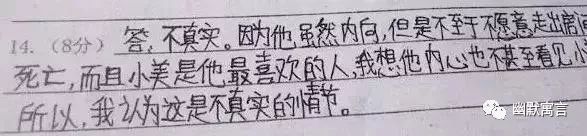 14.（8分）答，不真实。因为他虽然内向，但是不至于不愿意走出房
死亡，而且小美是他最喜欢的人，我想他内心也不甚至看见小
所以，我认为这是不真实的情节。
幽默寓言